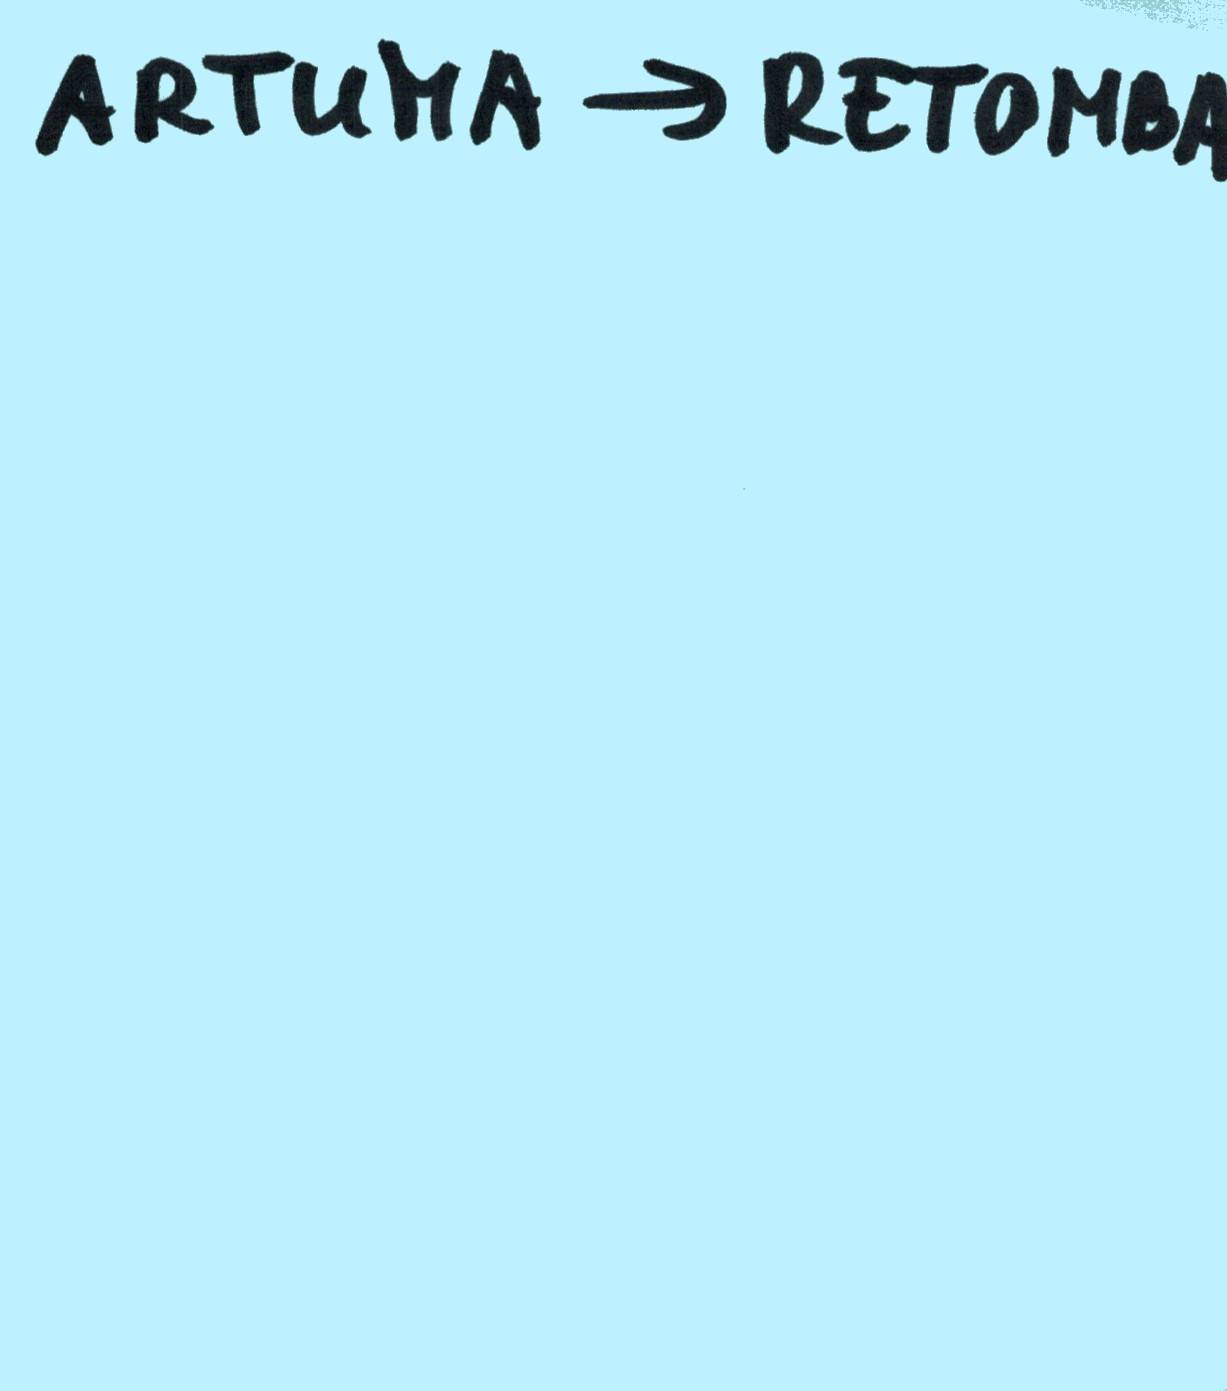 ARTUMA → RETOMBA